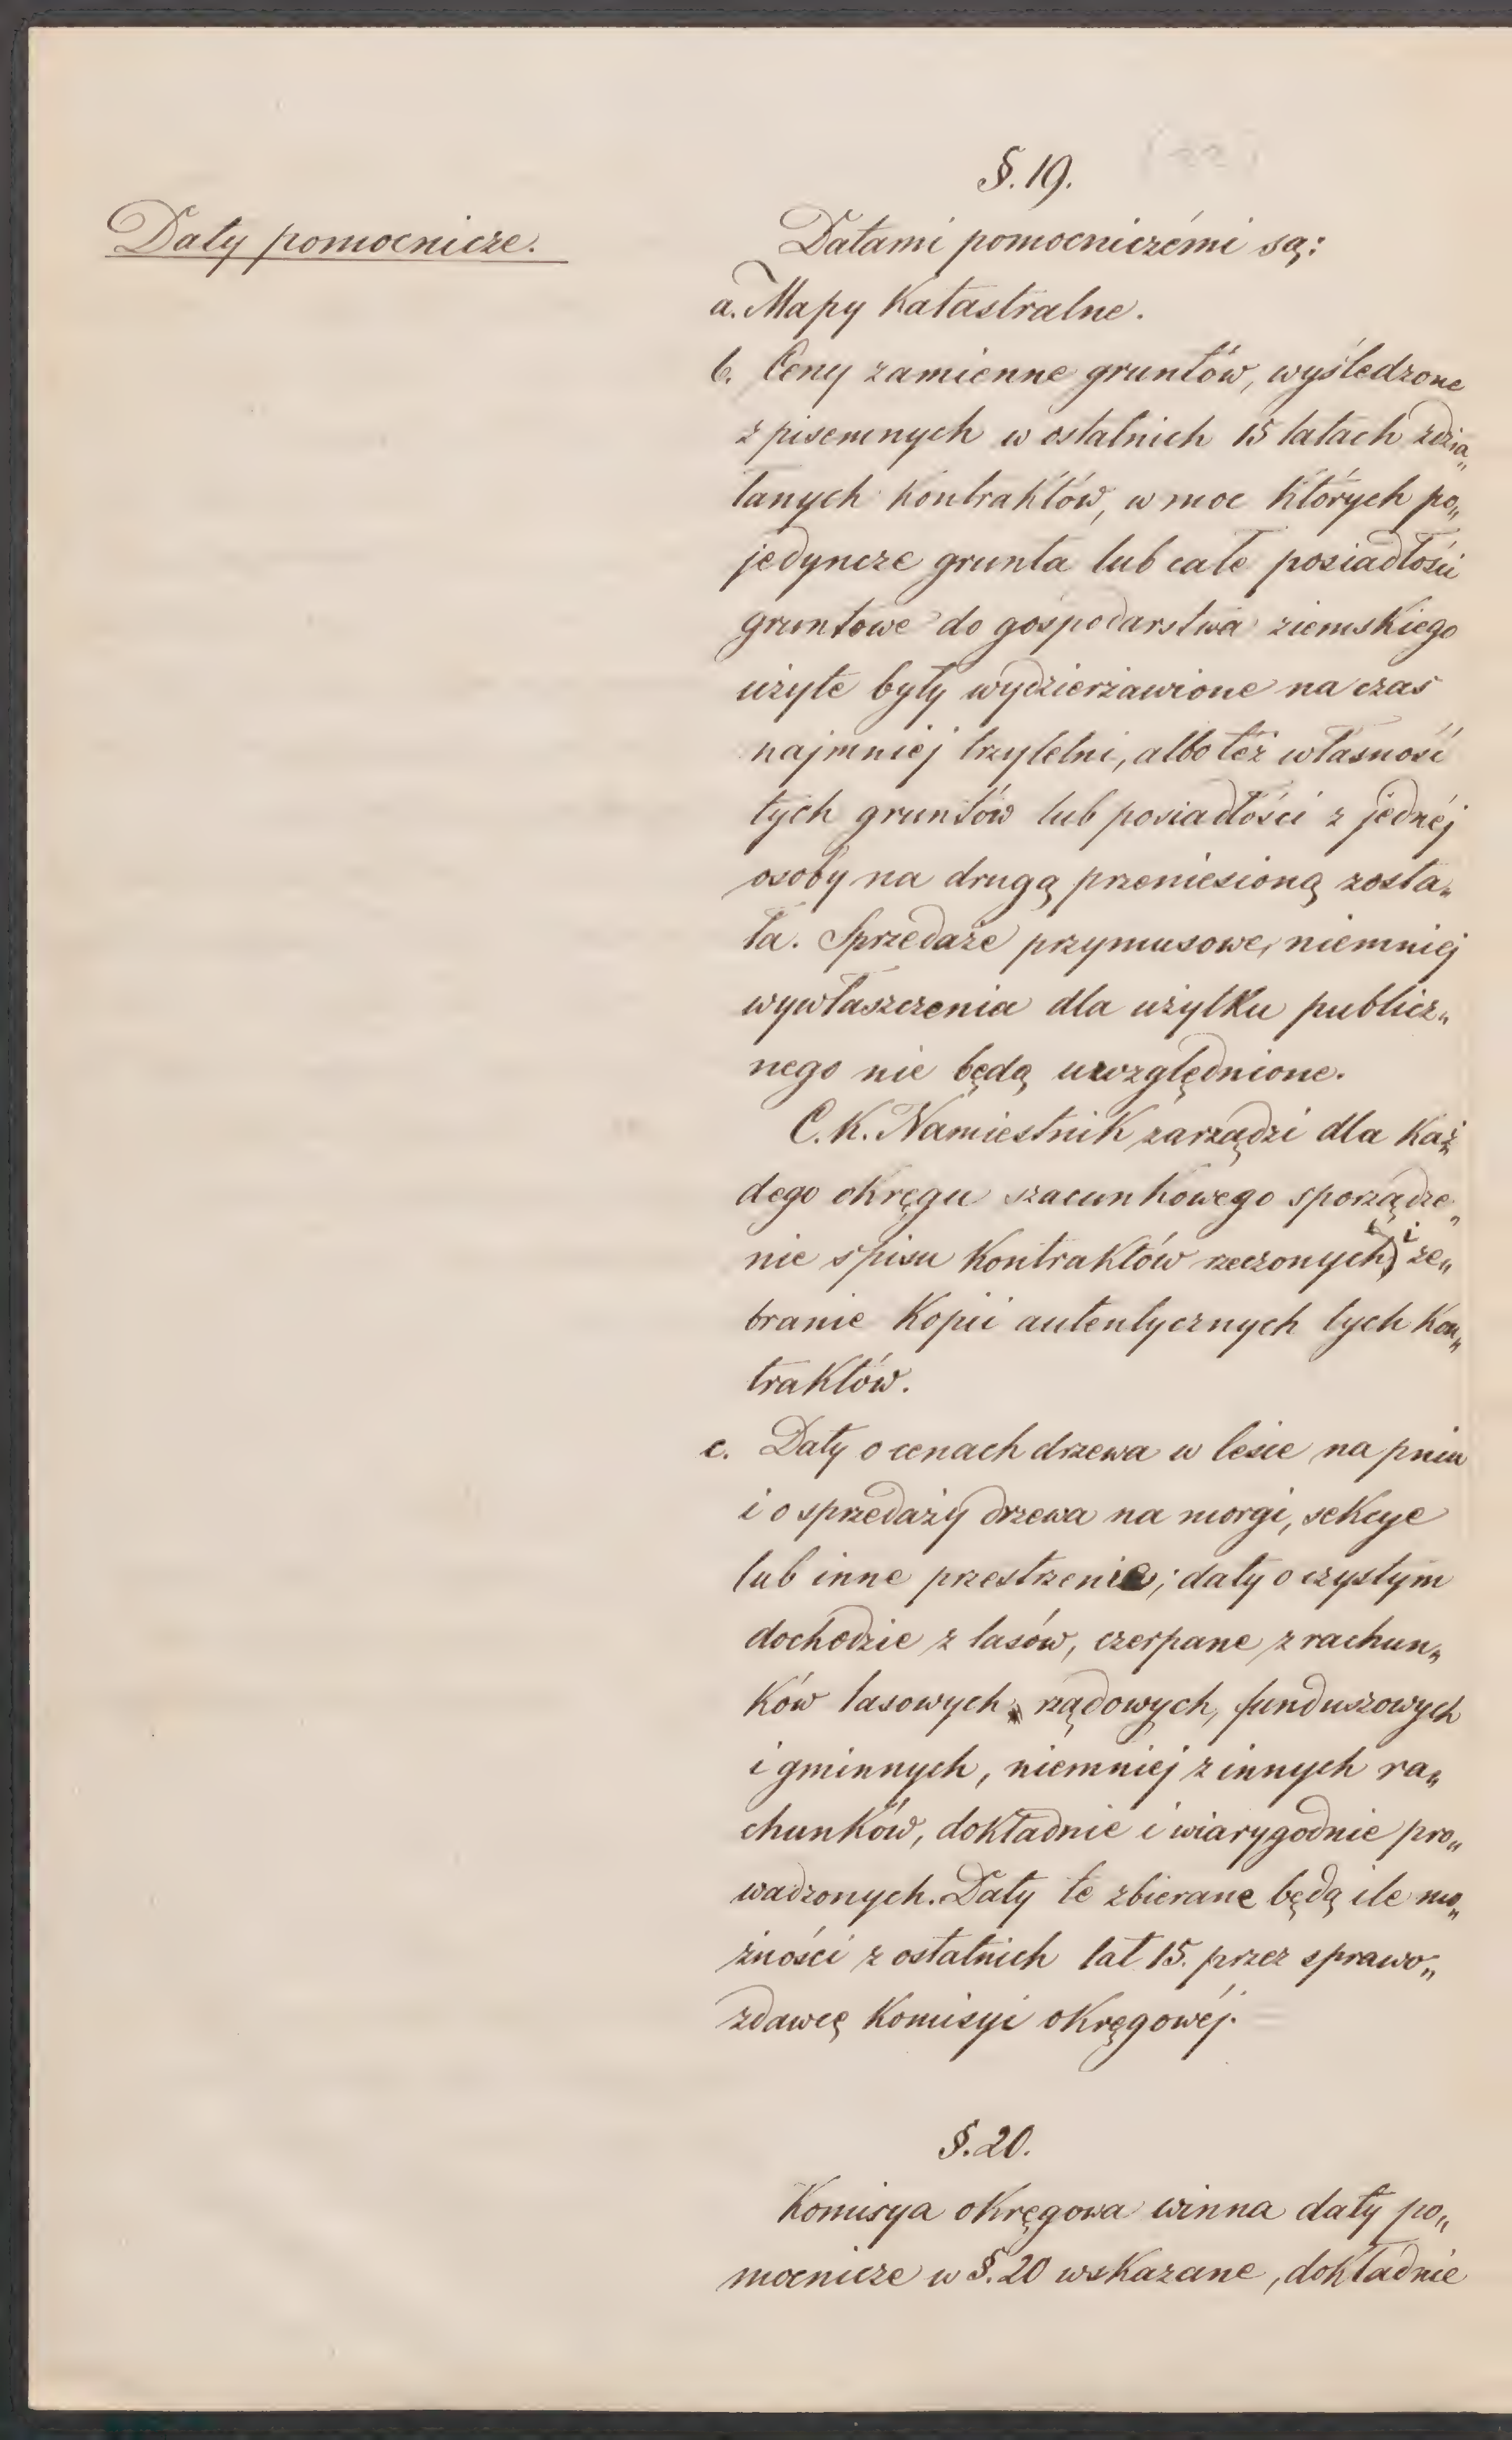 §. 19.
Daty pomocnicze.
Datami pomocniczémi są:
a. Mapy Katastralne.
b. Ceny zamienne gruntów, wyśledzone
z pisemnych w ostatnich 15 latach zdzia„
łanych kontraktów, w moc których po„
jedyncze grunta lub całe posiadłości
gruntowe do gospodarstwa ziemskiego
użyte były wydzierżawione na czas
najmniej trzyletni, albo też własność
tych gruntów lub posiadłości z jednéj
osoby na drugą przeniesioną zosta„
ła. Sprzedaże przymusowe, niemniej
wywłaszczenia dla użytku publicz„
nego nie będą uwzględnione.
C. K. Namiestnik zarządzi dla każ„
dego okręgu szacunkowego sporządze„
nie spisu kontraktów rzeczonych i ze„
branie kopii autentycznych tych kon„
traktów.
c. Daty o cenach drzewa w lesie na pniu
i o sprzedaży drzewa na morgi, sekcye
lub inne przestrzenie; daty o czystym
dochodzie z lasów, czerpane z rachun„
ków lasowych rządowych, funduszowych
i gminnych, niemniej z innych ra„
chunków, dokładnie i wiarygodnie pro„
wadzonych. Daty te zbierane będą ile mo„
żności z ostatnich lat 15. przez sprawo„
zdawcę Komisyi okręgowéj.
§. 20.
Komisya okręgowa winna daty po„
mocnicze w §. 20 wskazane, dokładnie